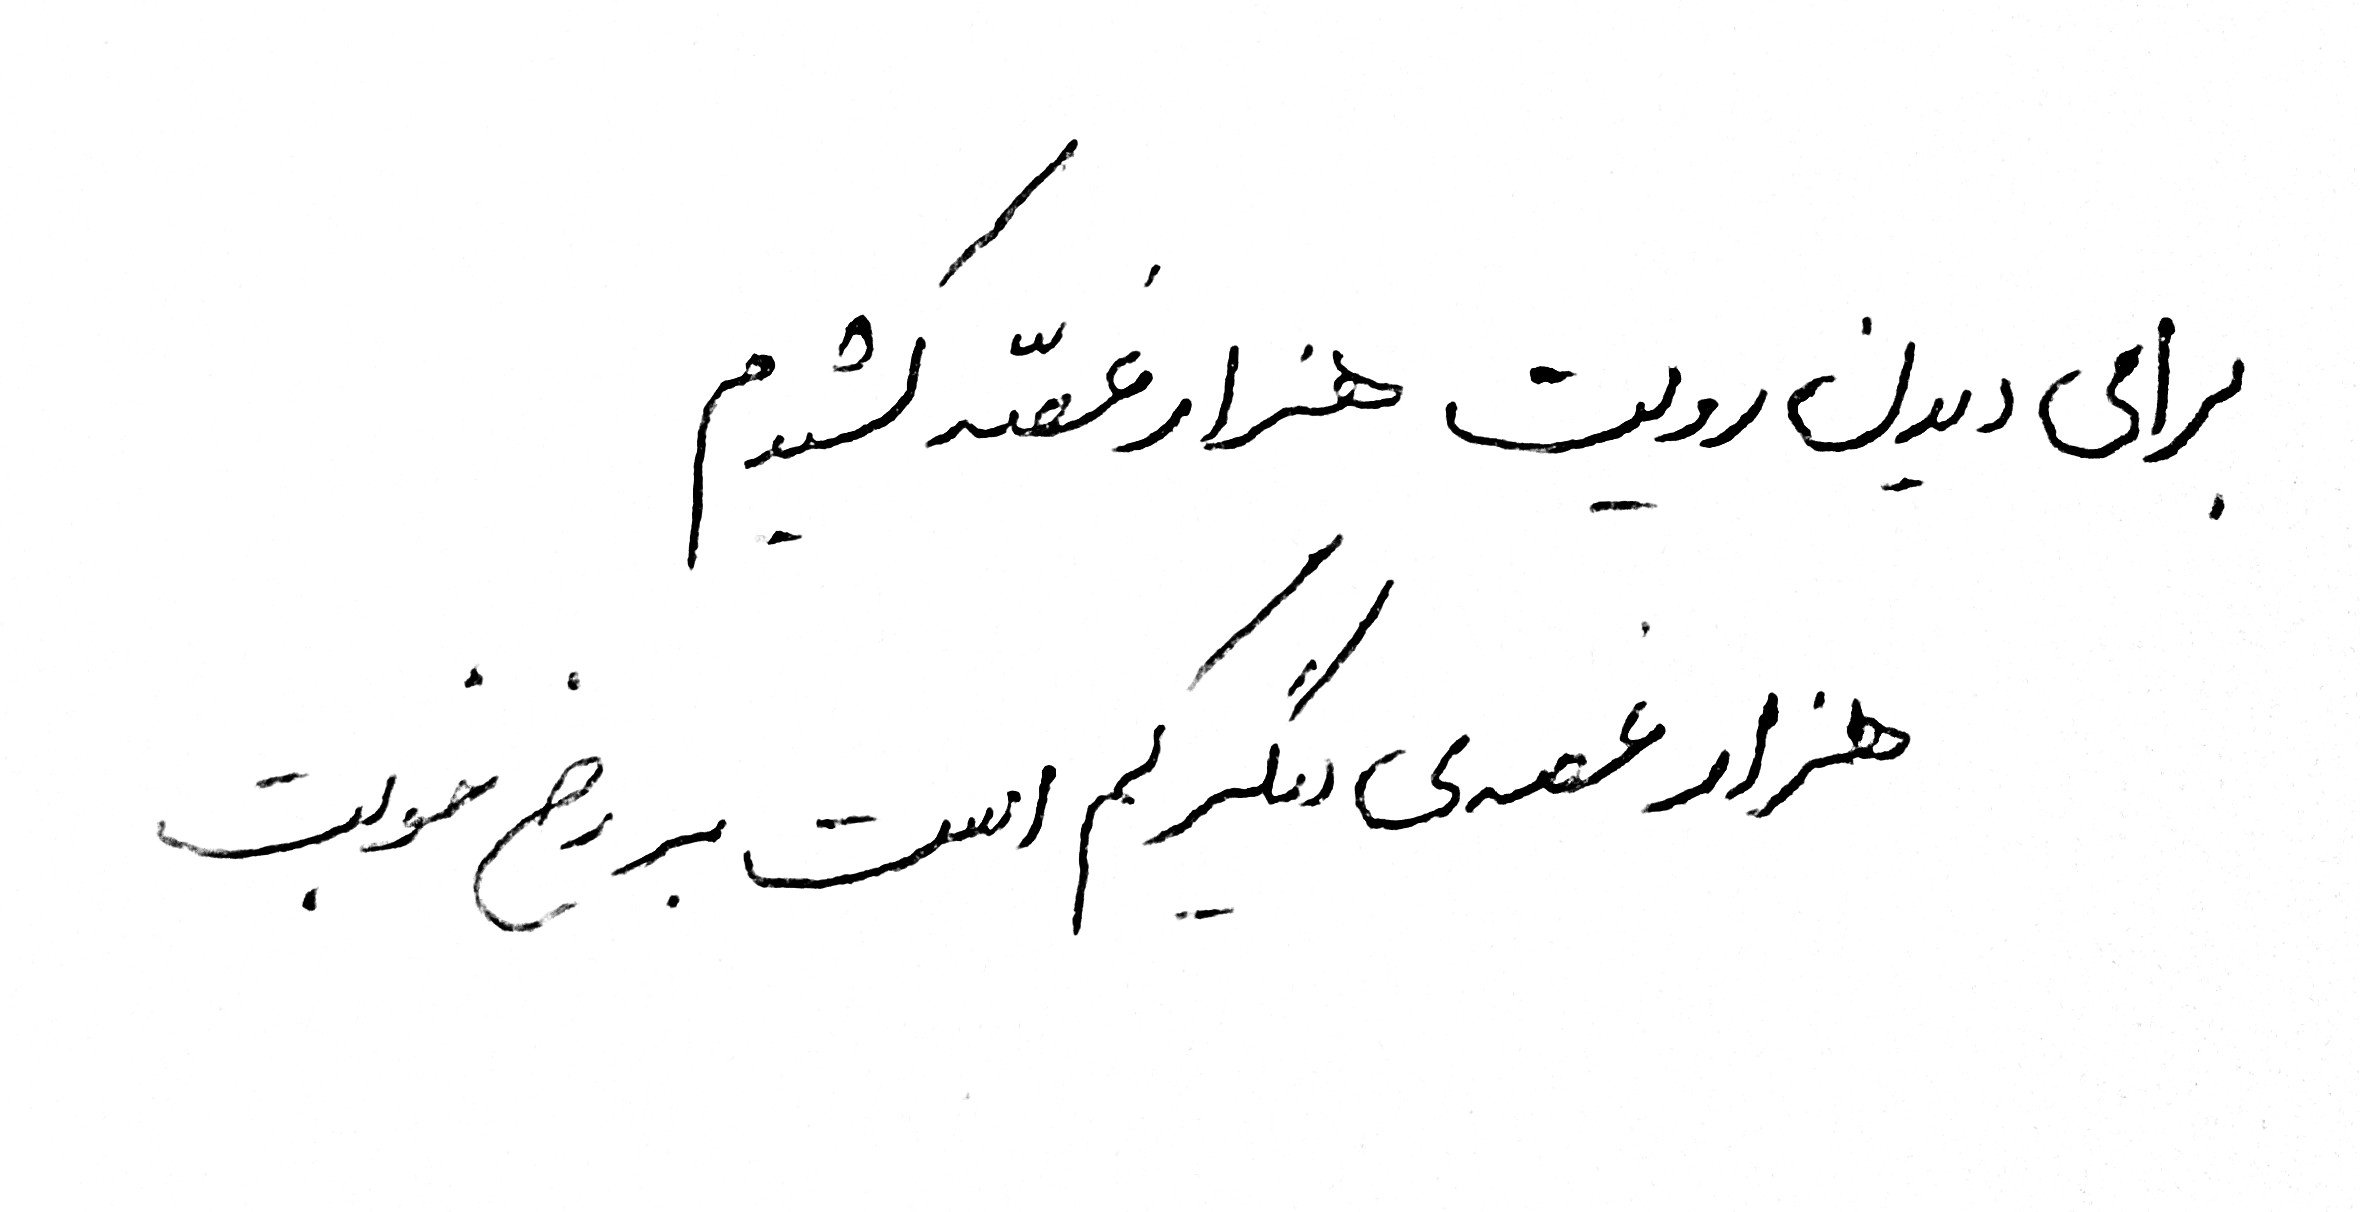 برای دیدن رویت هزار غصّه کشیدم
هزار غصه‌ی دیگر یم است بر رخ خوبت